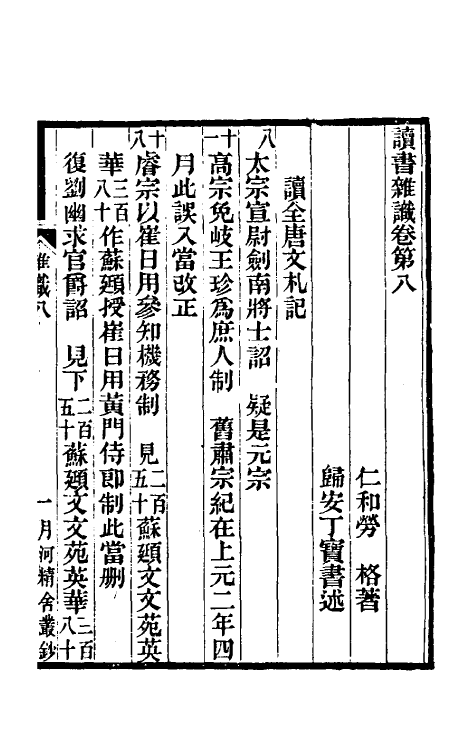 讀書雜識卷第八
仁和勞　格著
歸安丁寶書述
讀全唐文札記
八　太宗宣尉劍南將士詔　疑是元宗
十一　高宗免岐王珍爲庶人制　舊肅宗紀在上元二年四
月此誤入當改正
十八　睿宗以崔日用參知機務制　見二百五十蘇頲文文苑英
華三百八十作蘇頲授崔日用黃門侍郎制此當刪
復劉幽求官爵詔　見下二百五十蘇頲文文苑英華三百八十
雜識八　一　月河精舍叢鈔